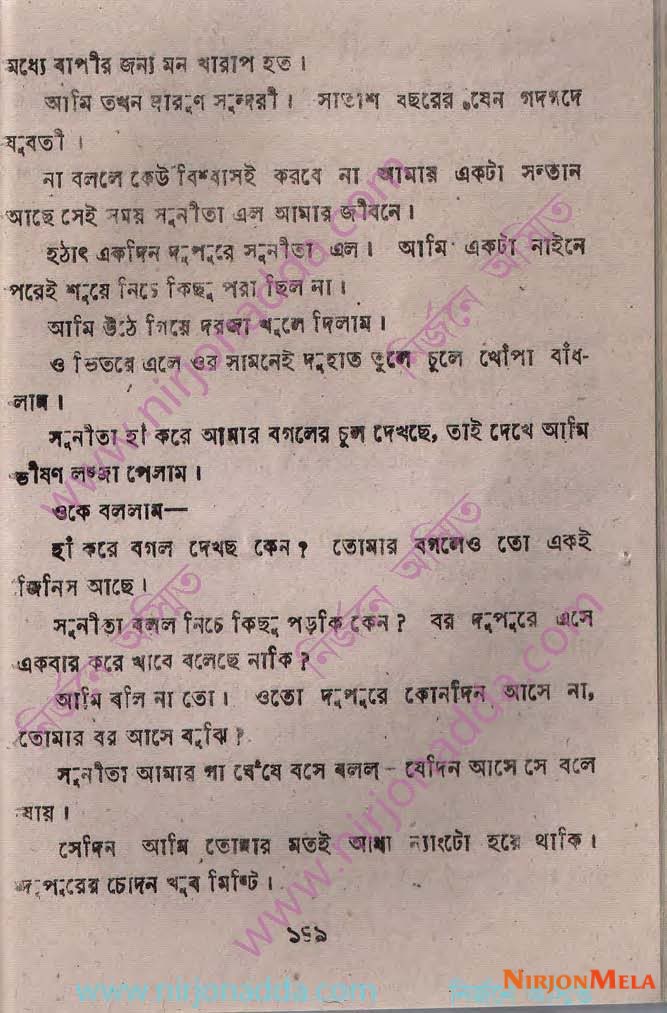 মধ্যে বাপীর জন্য মন খারাপ হত।
আমি তখন দারুণ সুন্দরী। সাতাশ বছরের যেন গদগদে
যুবতী।
না বললে কেউ বিশ্বাসই করবে না আমার একটা সন্তান
আছে সেই সময় সুনীতা এল আমার জীবনে।
হঠাৎ একদিন দুপুরে সুনীতা এল। আমি একটা নাইনে
পরেই শুয়ে নিচে কিছু পরা ছিল না।
আমি উঠে গিয়ে দরজা খুলে দিলাম।
ও ভিতরে এলে ওর সামনেই দুহাত তুলে চুলে খোঁপা বাঁধ-
লাম।
সুনীতা হাঁ করে আমার বগলের চুল দেখছে, তাই দেখে আমি
ভীষণ লজ্জা পেলাম।
ওকে বললাম—
হাঁ করে বগল দেখছ কেন? তোমার বগলেও তো একই
জিনিস আছে।
সুনীতা বলল নিচে কিছু পড়কি কেন? বর দুপুরে এসে
একবার করে খাবে বলেছে নাকি?
আমি বলি না তো। ওতো দুপুরে কোনদিন আসে না,
তোমার বর আসে বুঝি?
সুনীতা আমার গা ঘেঁষে বসে বলল - যেদিন আসে সে বলে
যায়।
সেদিন আমি তোমার মতই আধা ন্যাংটো হয়ে থাকি।
দুপুরের চোদন খুব মিষ্টি।
www.nirjonadda.com
নির্জনে অস্মিত
www.nirjonadda.com
নির্জনে অস্মিত
নির্জনে অস্মিত
www.nirjonadda.com
NIRJONMELA